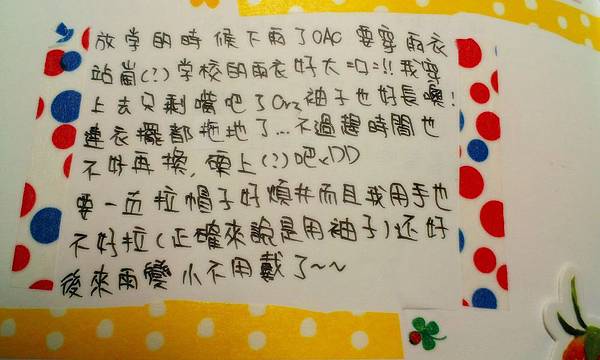 放学的時候下雨了OAO 要穿雨衣
站崗(?)学校的雨衣好大=口=!!我穿
上去只剩嘴吧了Orz袖子也好長噢!
連衣擺都拖地了...不過趕時間也
不好再換,硬上(?)吧xDD
要一直拉帽子好煩#而且我用手也
不好拉(正確來說是用袖子)还好
後來雨變小不用戴了~~